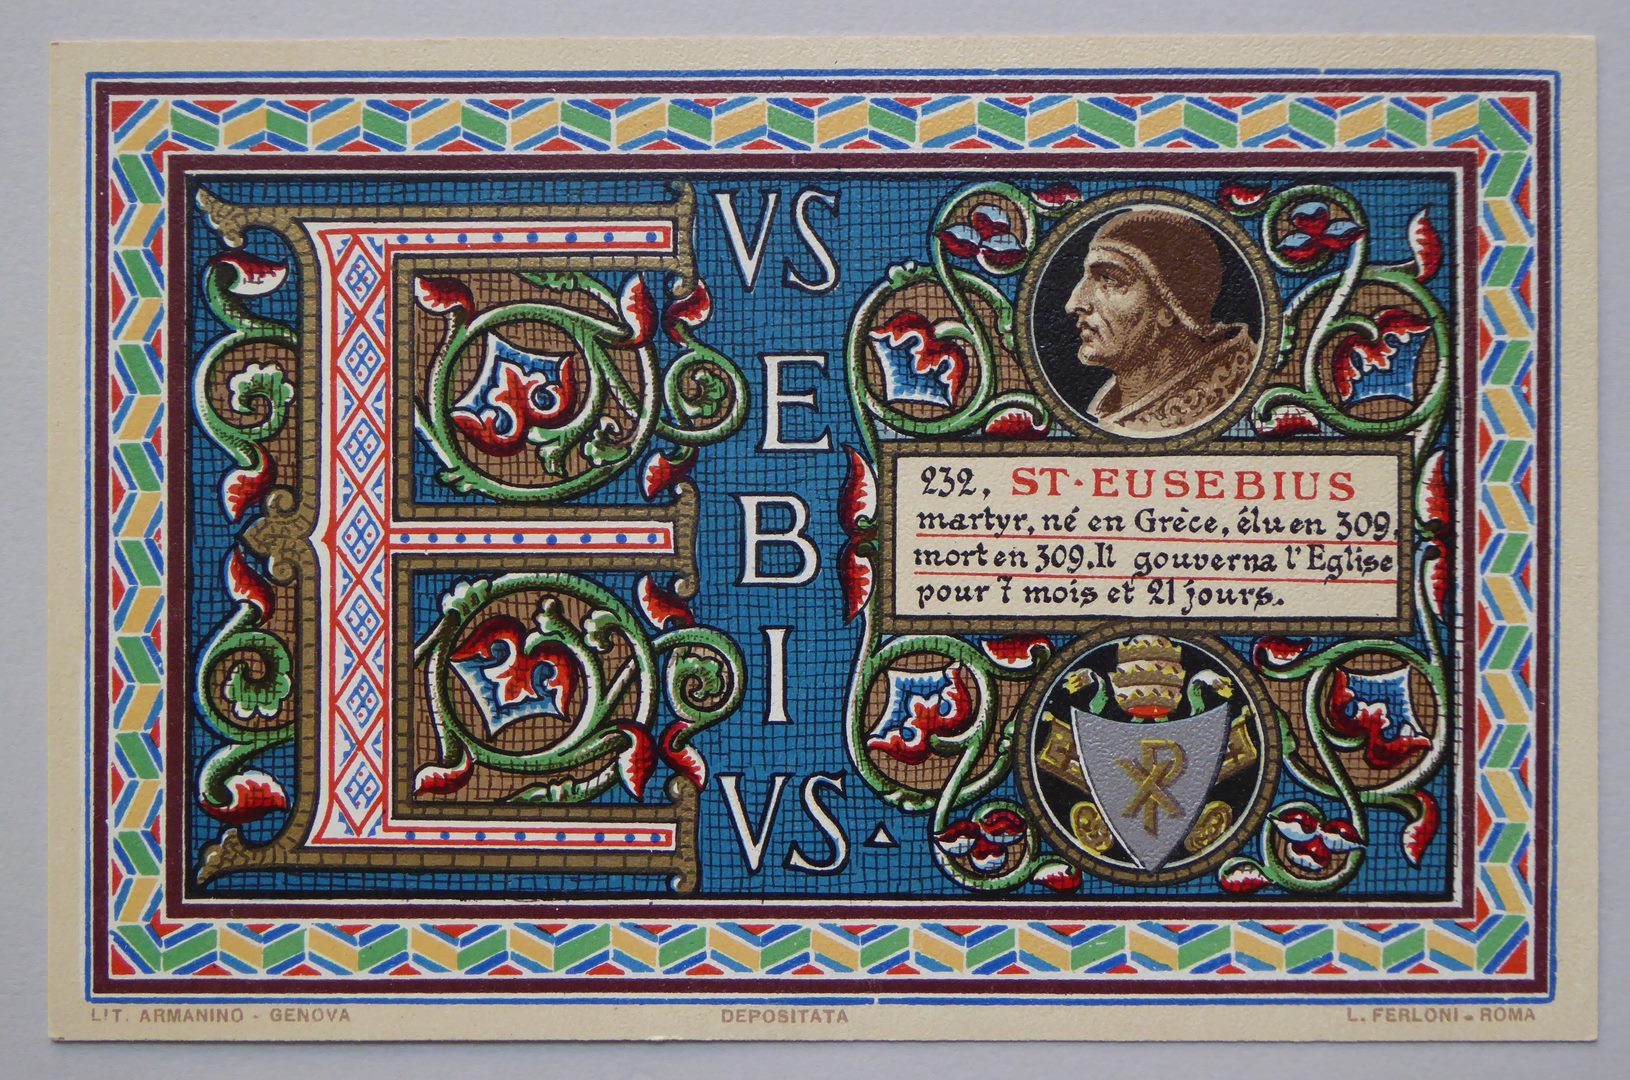 E
VS
E
B
I
VS
232, ST·EUSEBIUS
martyr, né en Grèce, élu en 309,
mort en 309. Il gouverna l'Eglise
pour 7 mois et 21 jours.
LIT. ARMANINO - GENOVA
DEPOSITATA
L. FERLONI - ROMA